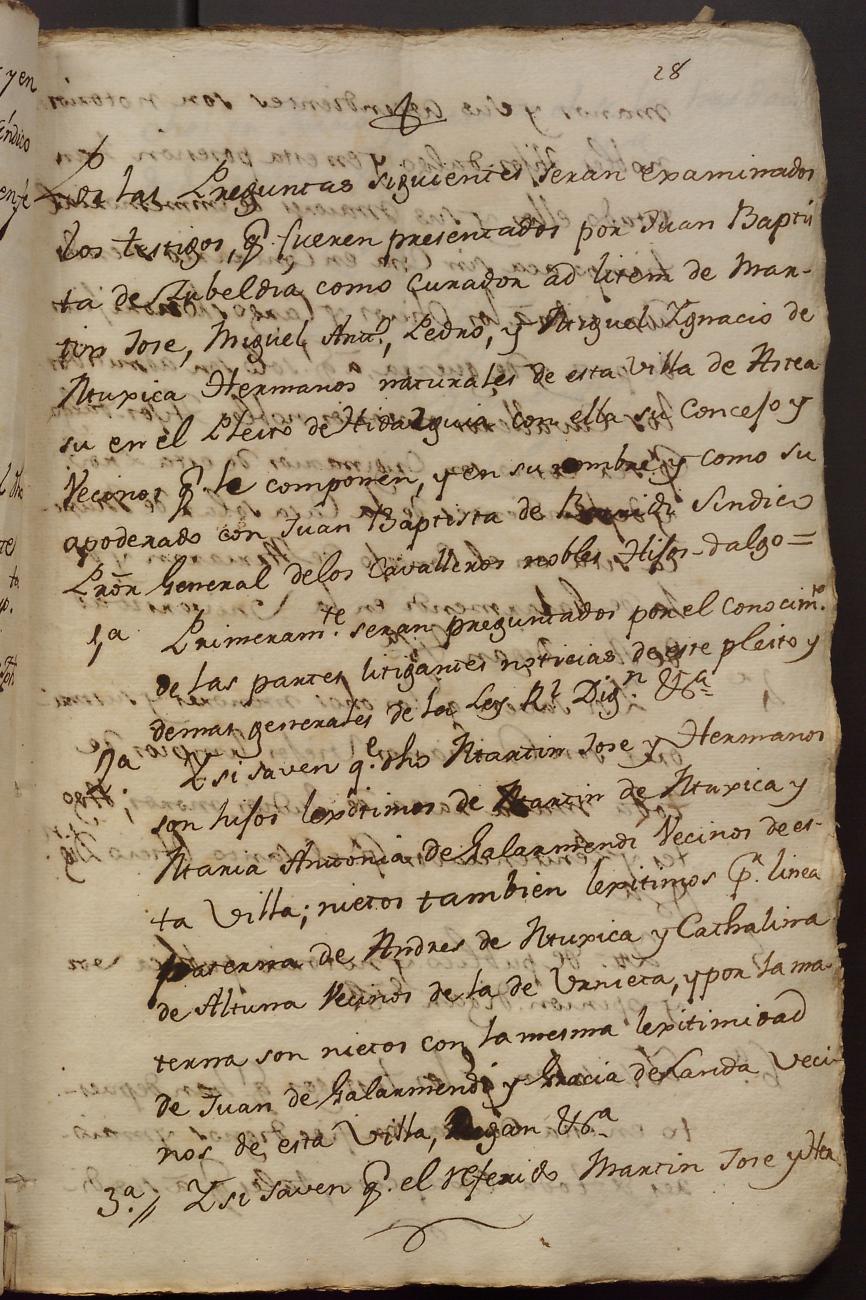 28
Por las Preguntas siguientes seran examinados
los testigos, q.e fueren presentados por Juan Baptis
ta de Zubeldia como Curador ad litem de Mar-
tin Jose, Miguel Ant.o, Pedro, y Miguel Ygnacio de
Muxica Hermanos naturales de esta Villa de Astea
su en el Pleito de Hidalguia con ella su Concejo y
Vecinos q.e le componen, y en su nombre y como su
apoderado con Juan Baptista de Sindico
Prõr General delos Cavalleros nobles Hijos-dalgo=
1,a Primeram.te seran preguntados por el Conocim.to
de las partes litigantes noticias de este pleito y
demas generales de la Ley R.l Dig.n &.a
2,a Y si saven q.e dho Martin Jose y Hermanos
son hijos lexitimos de Martin de Muxica y
Maria Antonia de Galarmendi Vecinos de es-
ta Villa; nietos tambien lexitimos p.r linea
paterna de Andres de Muxica y Cathalina
de Altuna Vecinos de la de Urnieta, y por la ma-
terna son nietos con la mesma lexitimidad
de Juan de Galarmendi y Gracia de Landa Veci-
nos de esta Villa, Digan &.a
3.a // Y si saven q.e el referido Martin Jose y Her